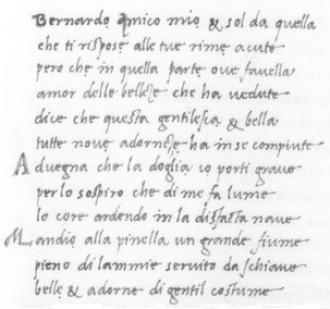 Bernardo Amico mio & sol da quella
che ti rispose alle tue rime acute
pero che in quella parte ove favella
amor delle bellezze che ha vedute
dice che questa gentilesca & bella
tutte nove adornezze ha in se compiute
Advegna che la doglia io porti grave
per lo sospiro che di me fa lume
lo core ardendo in la disfacta nave
Mandio alla pinella un grande fiume
pieno di lammie servito da schiave
belle & adorne di gentil costume